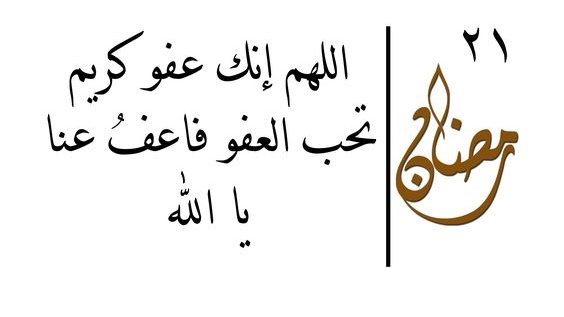 ٢١
رمضان
اللهم إنك عفو كريم
تحب العفو فاعفُ عنا
يا الله